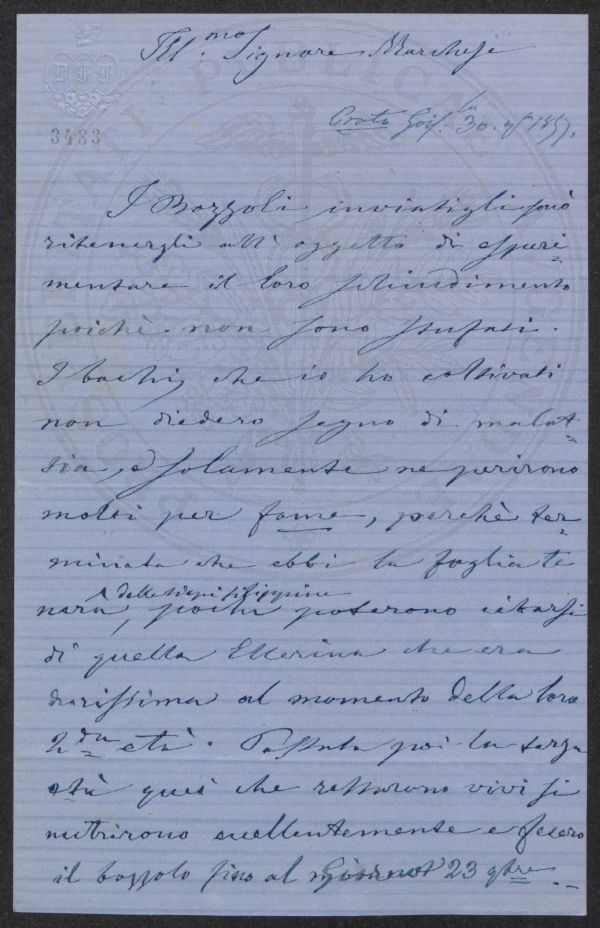 Ill.mo Signore Marchese
3483
30. 1857.
I Bozzoli inviatigli può
ritenergli all' oggetto di speri=
mentare il loro schiudimento
poichè non sono stufati.
I bachi, che io ho coltivati
non diedero segno di malat=
sia, e solamente ne perirono
molti per fame, perchè ter=
minata che ebbi la foglia te
delle siepi filippine
nera, pochi poterono cibarsi
di quella Ellerina che era
durissima al momento della loro
2da età. Passata poi la terza
età quei che restarono vivi si
nutrirono eccellentemente e fecero
il bozzolo fino al 23 9bre